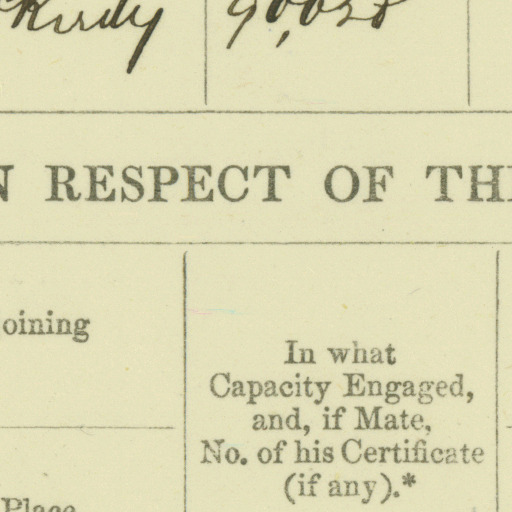 90,028
N RESPECT OF TH
oining
In what
Capacity Engaged,
and, if Mate,
No. of his Certificate
(if any).*
Place